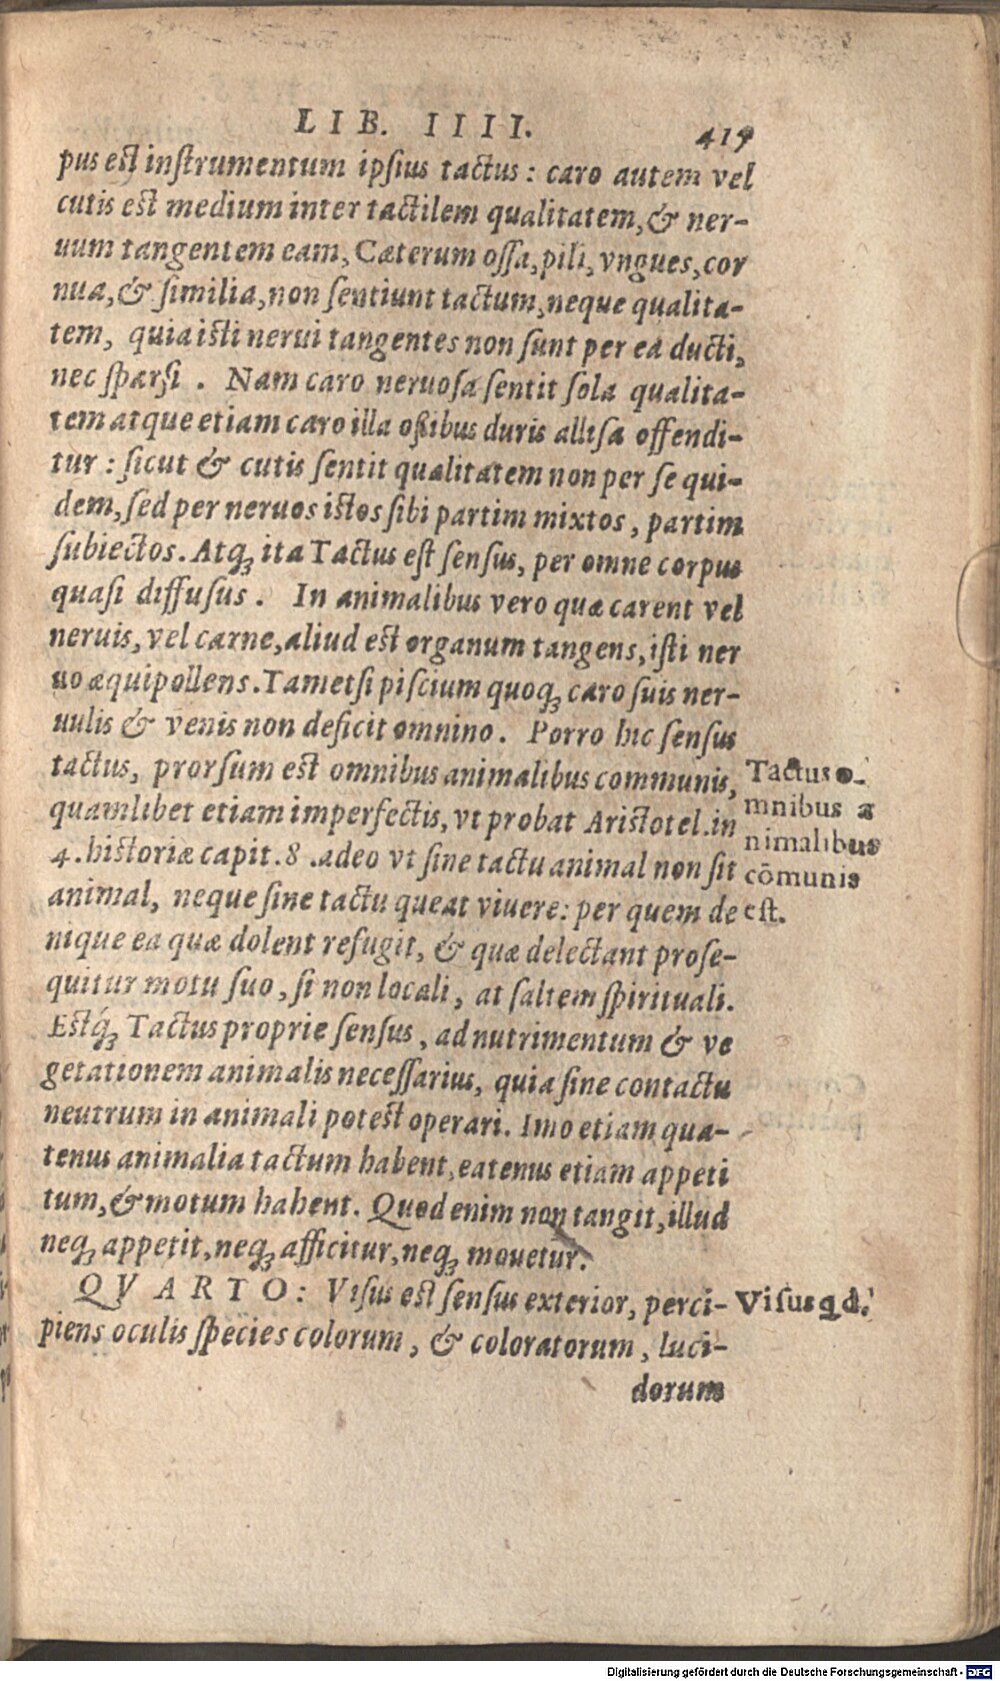 LIB. IIII. 415
pus est instrumentum ipsius tactus: caro autem vel
cutis est medium inter tactilem qualitatem, & ner-
uum tangentem eam, Cæterum ossa, pili, vngues, cor
nua, & similia, non sentiunt tactum, neque qualita-
tem, quia isti nerui tangentes non sunt per ea ducti,
nec sparsi. Nam caro neruosa sentit sola qualita-
tem atque etiam caro illa ossibus duris allisa offendi-
tur: sicut & cutis sentit qualitatem non per se qui-
dem, sed per neruos istos sibi partim mixtos, partim
subiectos. Atq́; ita Tactus est sensus, per omne corpus
quasi diffusus. In animalibus vero quæ carent vel
neruis, vel carne, aliud est organum tangens, isti ner
uo æquipollens. Tametsi piscium quoq; caro suis ner-
uulis & venis non deficit omnino. Porro hic sensus
tactus, prorsum est omnibus animalibus communis,
quamlibet etiam imperfectis, vt probat Aristotel. in
4. historiæ capit. 8. adeo vt sine tactu animal non sit
animal, neque sine tactu queat viuere: per quem de
nique ea quæ dolent refugit, & quæ delectant prose-
quitur motu suo, si non locali, at saltem spirituali.
Estq́; Tactus proprie sensus, ad nutrimentum & ve
getationem animalis necessarius, quia sine contactu
neutrum in animali potest operari. Imo etiam qua-
tenus animalia tactum habent, eatenus etiam appeti
tum, & motum habent. Quod enim non tangit, illud
neq; appetit, neq; afficitur, neq; mouetur.
QVARTO: Visus est sensus exterior, perci-
piens oculis species colorum, & coloratorum, luci-
dorum
Tactus o-
mnibus a
nimalibus
cōmunis
est.
Visus qd.
Digitalisierung gefördert durch die Deutsche Forschungsgemeinschaft - DFG